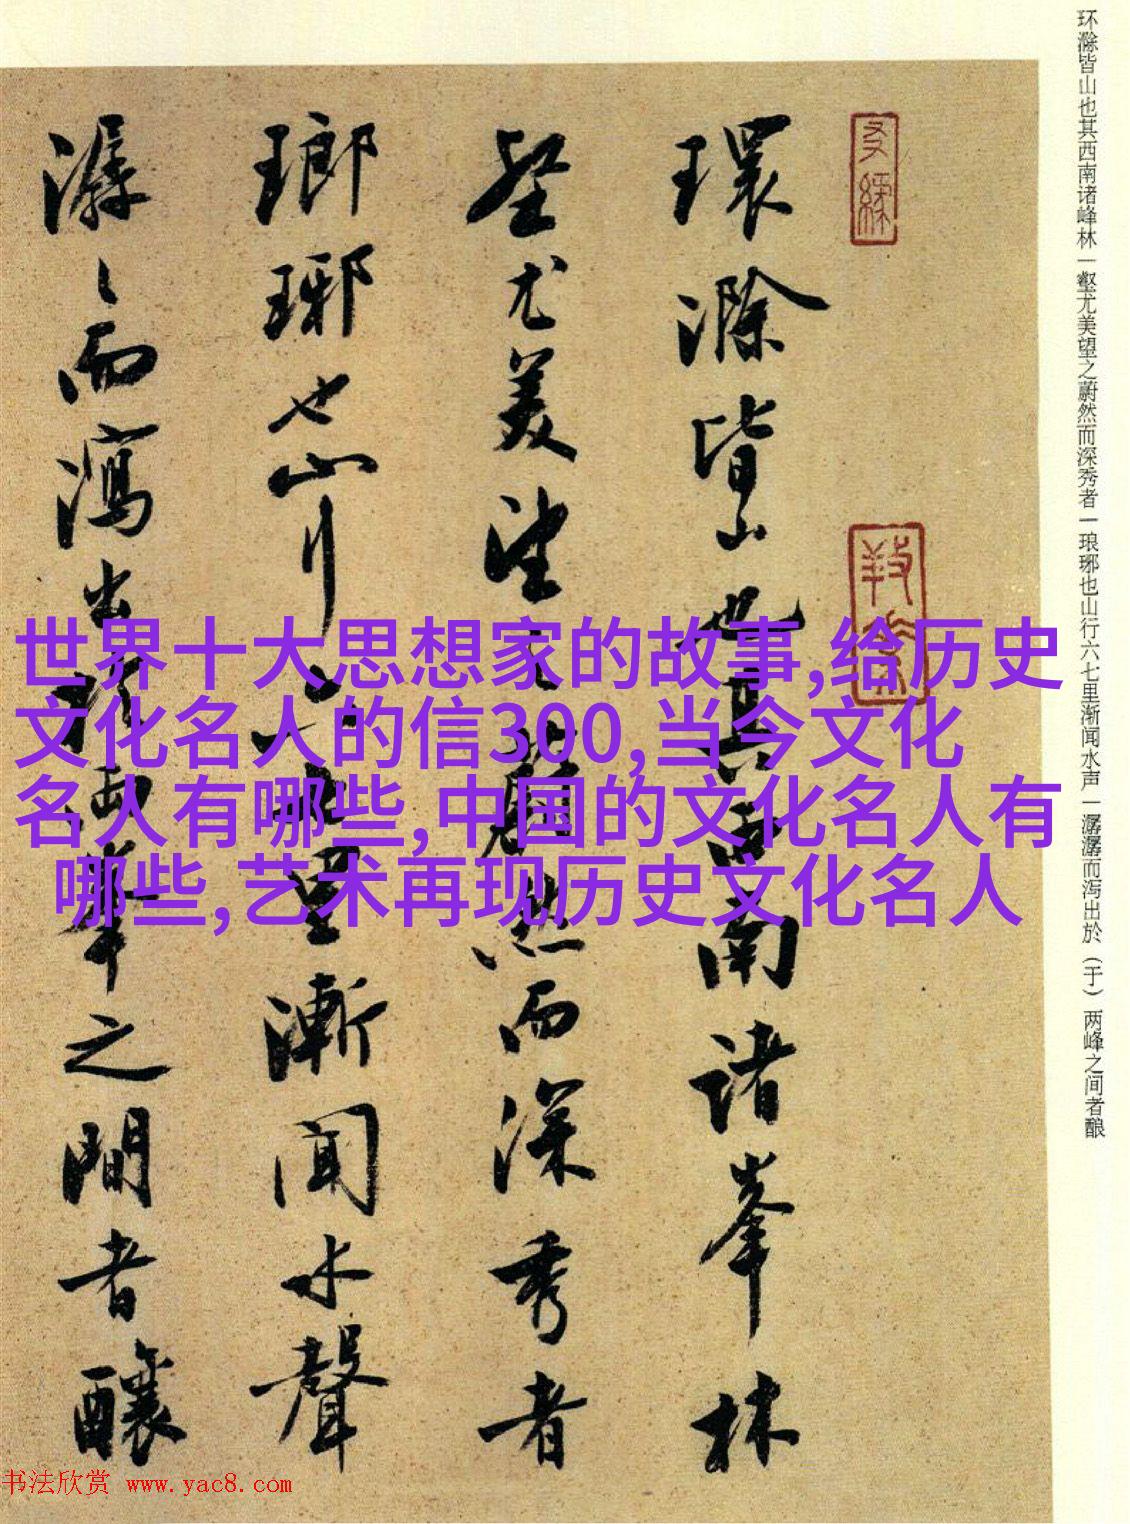 环滁皆山也其西南诸峰林一壑尤美望之蔚然而深秀者一琅琊也山行六七里渐闻水声一潺潺而泻出於（于）两峰之间者酿
環滁皆山也其西南諸峯林
壑尤美望之蔚然而深秀者
瑯琊也山行六七里漸聞水聲
潺〻而瀉出於兩峯之間者釀
世界十大思想家的故事,给历史
文化名人的信300,当今文化
名人有哪些,中国的文化名人有
哪些,艺术再现历史文化名人
书法欣赏 www.yac8.com